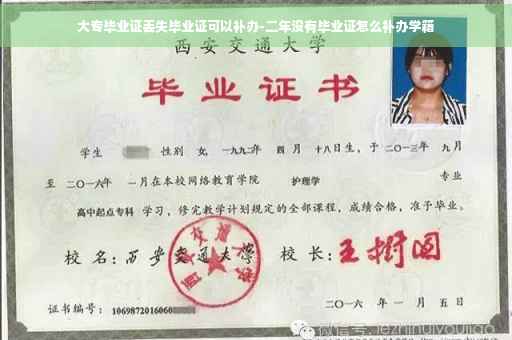 大专毕业证丢失毕业证可以补办-二年没有毕业证怎么补办学藉
西安交通大学
毕业证书
学生 性别 女, 一九九二年 四月 十八日生, 于 二〇一三年 九月
至 二〇一六年 一月在本校网络教育学院 护理学 专业
高中起点专科 学习, 修完教学计划规定的全部课程, 成绩合格, 准予毕业。
校 名: 西安交通大学 校 长: 王树国
西安交通大学
证书编号: 1069872016060
二〇一六 年 一 月 五 日
微信号: jiezhihuiyoujiao